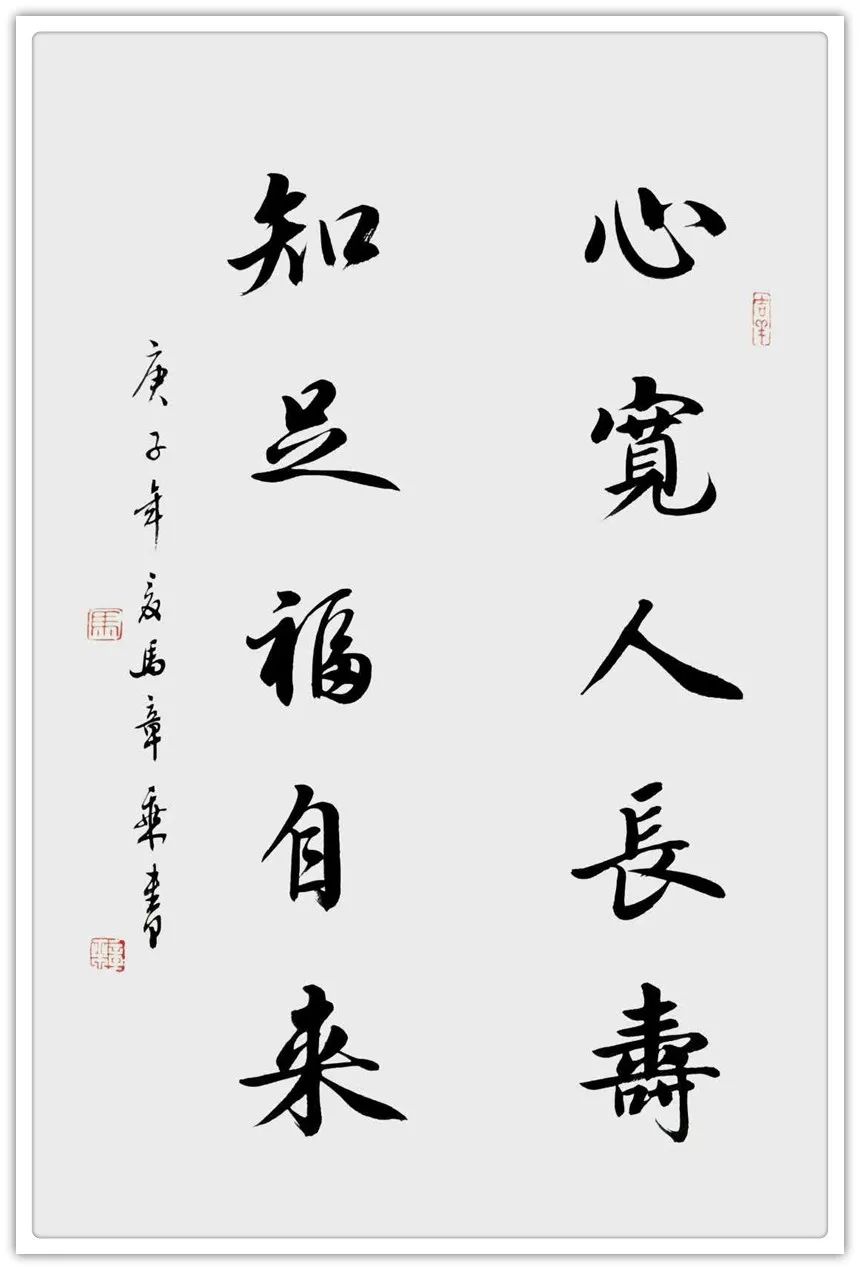 心寬人長壽
知足福自來
庚子年夏馬章乘書
馬